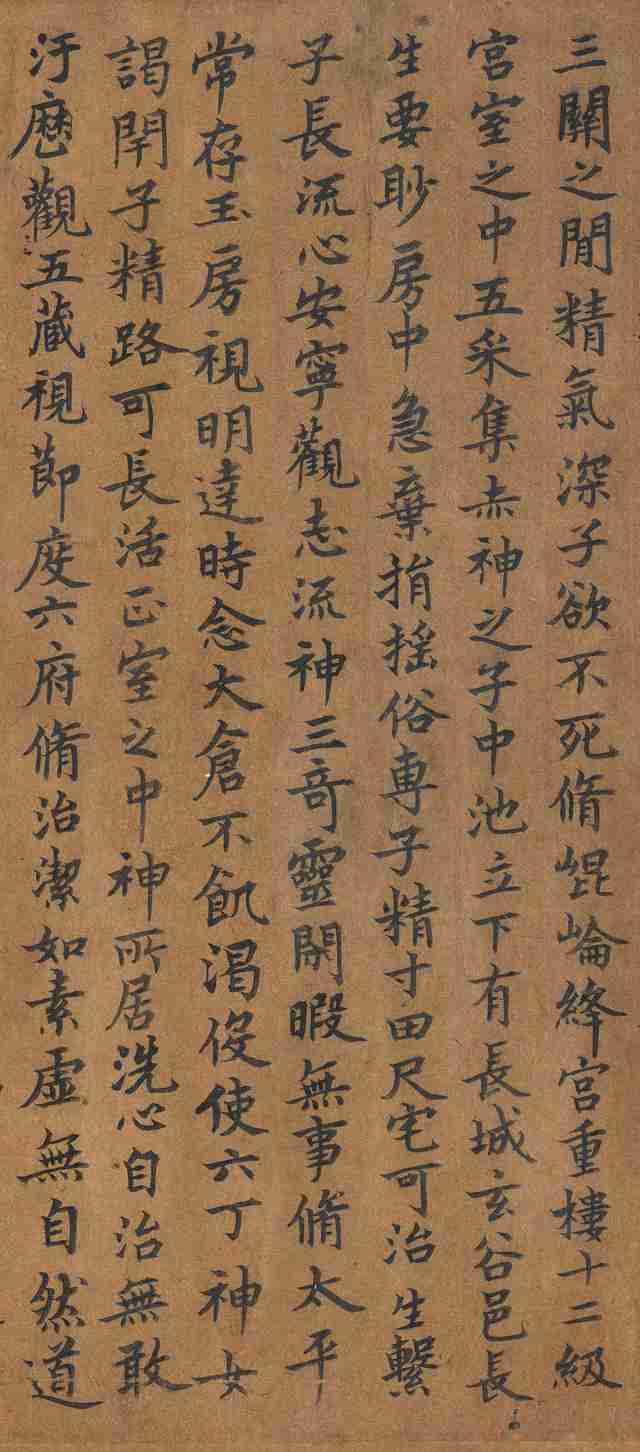 三關之閒精氣深子欲不死脩崐崘絳宮重樓十二級
宮室之中五采集赤神之子中池立下有長城玄谷邑長
生要眇房中急棄捐搖俗專子精寸田尺宅可治生繫
子長流心安寧觀志流神三奇靈閒暇無事脩太平
常存玉房視明達時念大倉不飢渴役使六丁神女
謁閇子精路可長活正室之中神所居洗心自治無敢
汙歷觀五藏視節度六府脩治潔如素虛無自然道